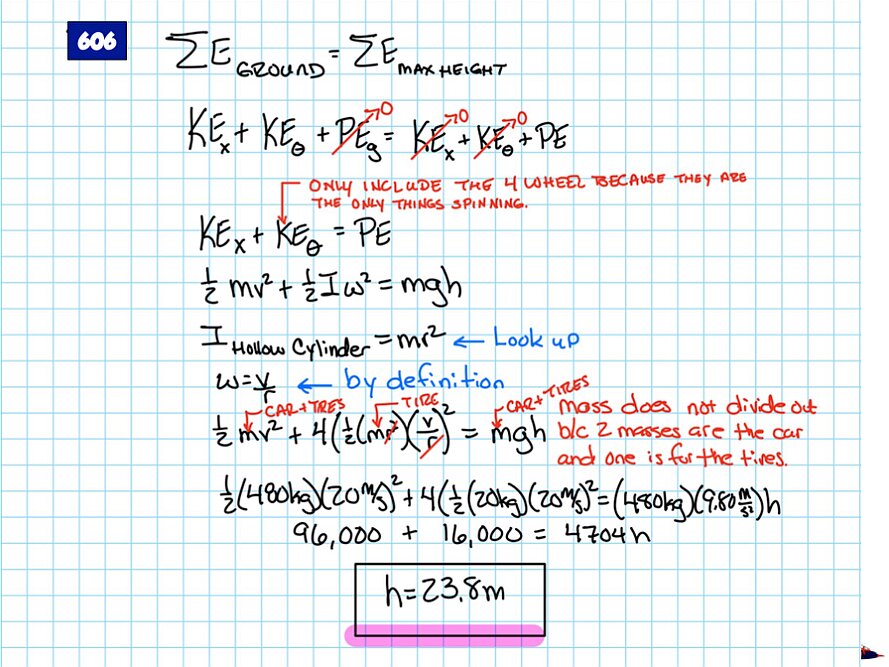 606
ΣE GROUND = ΣE MAX HEIGHT
KEₓ + KE_θ + PE_g→0 = KEₓ→0 + KE_θ→0 + PE
ONLY INCLUDE THE 4 WHEEL BECAUSE THEY ARE
THE ONLY THINGS SPINNING.
KEₓ + KE_θ = PE
½ mv² + ½ I ω² = mgh
I Hollow Cylinder = mr² ← Look up
ω = v/r ← by definition
CAR + TIRES TIRE CAR + TIRES
½ mv² + 4(½(mr²)(v/r)² = mgh
mass does not divide out
b/c 2 masses are the car
and one is for the tires.
½(480kg)(20 m/s)² + 4(½(20kg)(20 m/s)² = (480kg)(9.80 m/s²)h
96,000 + 16,000 = 4704h
h = 23.8m